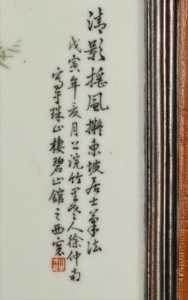 清影搖風擬東坡居士筆法
戊寅年亥月上浣竹里老人徐仲南
寫于珠山棲碧山館之西窗